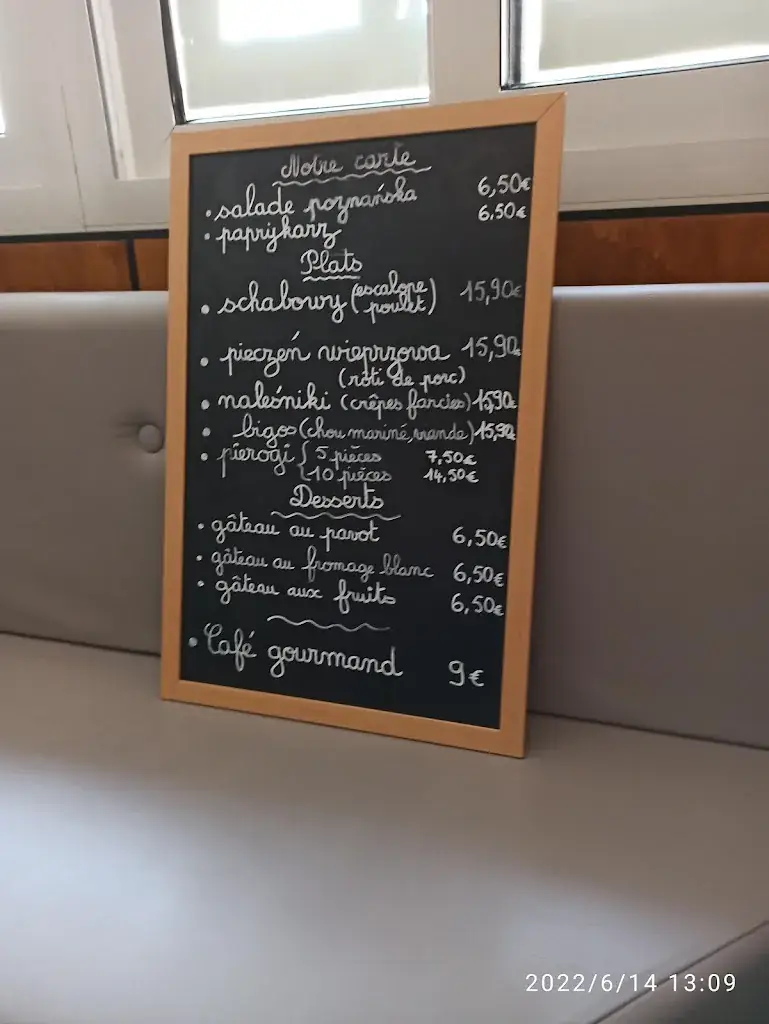 Notre carte
• salade poznańska 6,50€
• paprykarz 6,50€
Plats
• schabowy (escalope poulet) 15,90€
• pieczeń wieprzowa 15,90€
(rôti de porc)
• naleśniki (crêpes farcies) 15,90€
• bigos (chou mariné, viande) 15,90€
• pierogi { 5 pièces 7,50€
10 pièces 14,50€
Desserts
• gâteau au pavot 6,50€
• gâteau au fromage blanc 6,50€
• gâteau aux fruits 6,50€
• Café gourmand 9€
2022/6/14 13:09